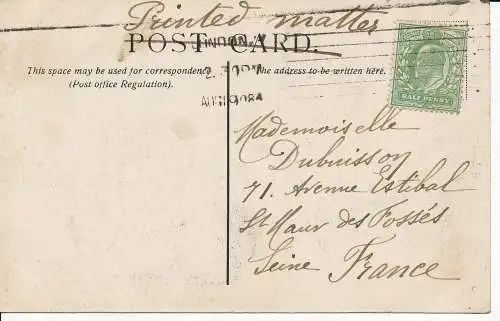 Printed matter
POST CARD.
LONDON.W
2.30PM
AU 19 08 84
This space may be used for correspondence
(Post office Regulation).
The address to be written here.
HALFPENNY
Mademoiselle
Dubuisson
71. Avenue Estibal
St Maur des Fossés
Seine France